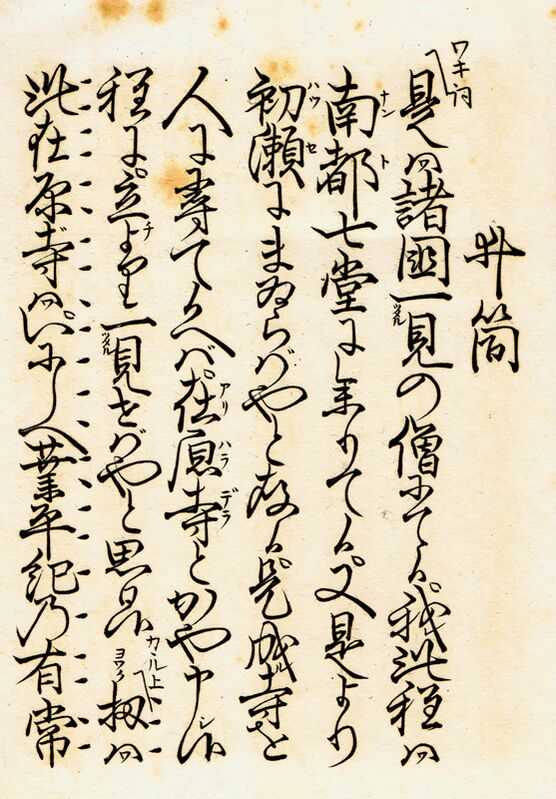 井筒
ワキ詞 是ハ諸國一見の僧にて候。我此程ハ
南都七堂に参りて候。又是より
初瀬にまゐらばやと存候。是成寺を
人に尋て候へば。在原寺とかや申候
程に。立より一見せばやと思ひ候 カヽル上 扨ハ
此在原寺ハ。いにしへ業平紀乃有常